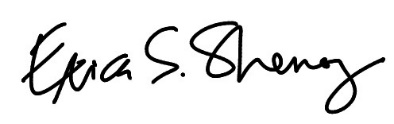 Erica S. Sheng